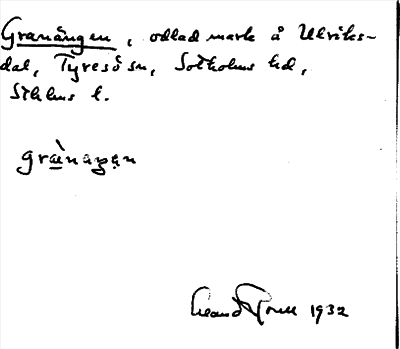 Granängen, odlad mark å Ulriks-
dal, Tyresö sn, Sotholms hd,
Sthlms l.
grànaŋən
1932